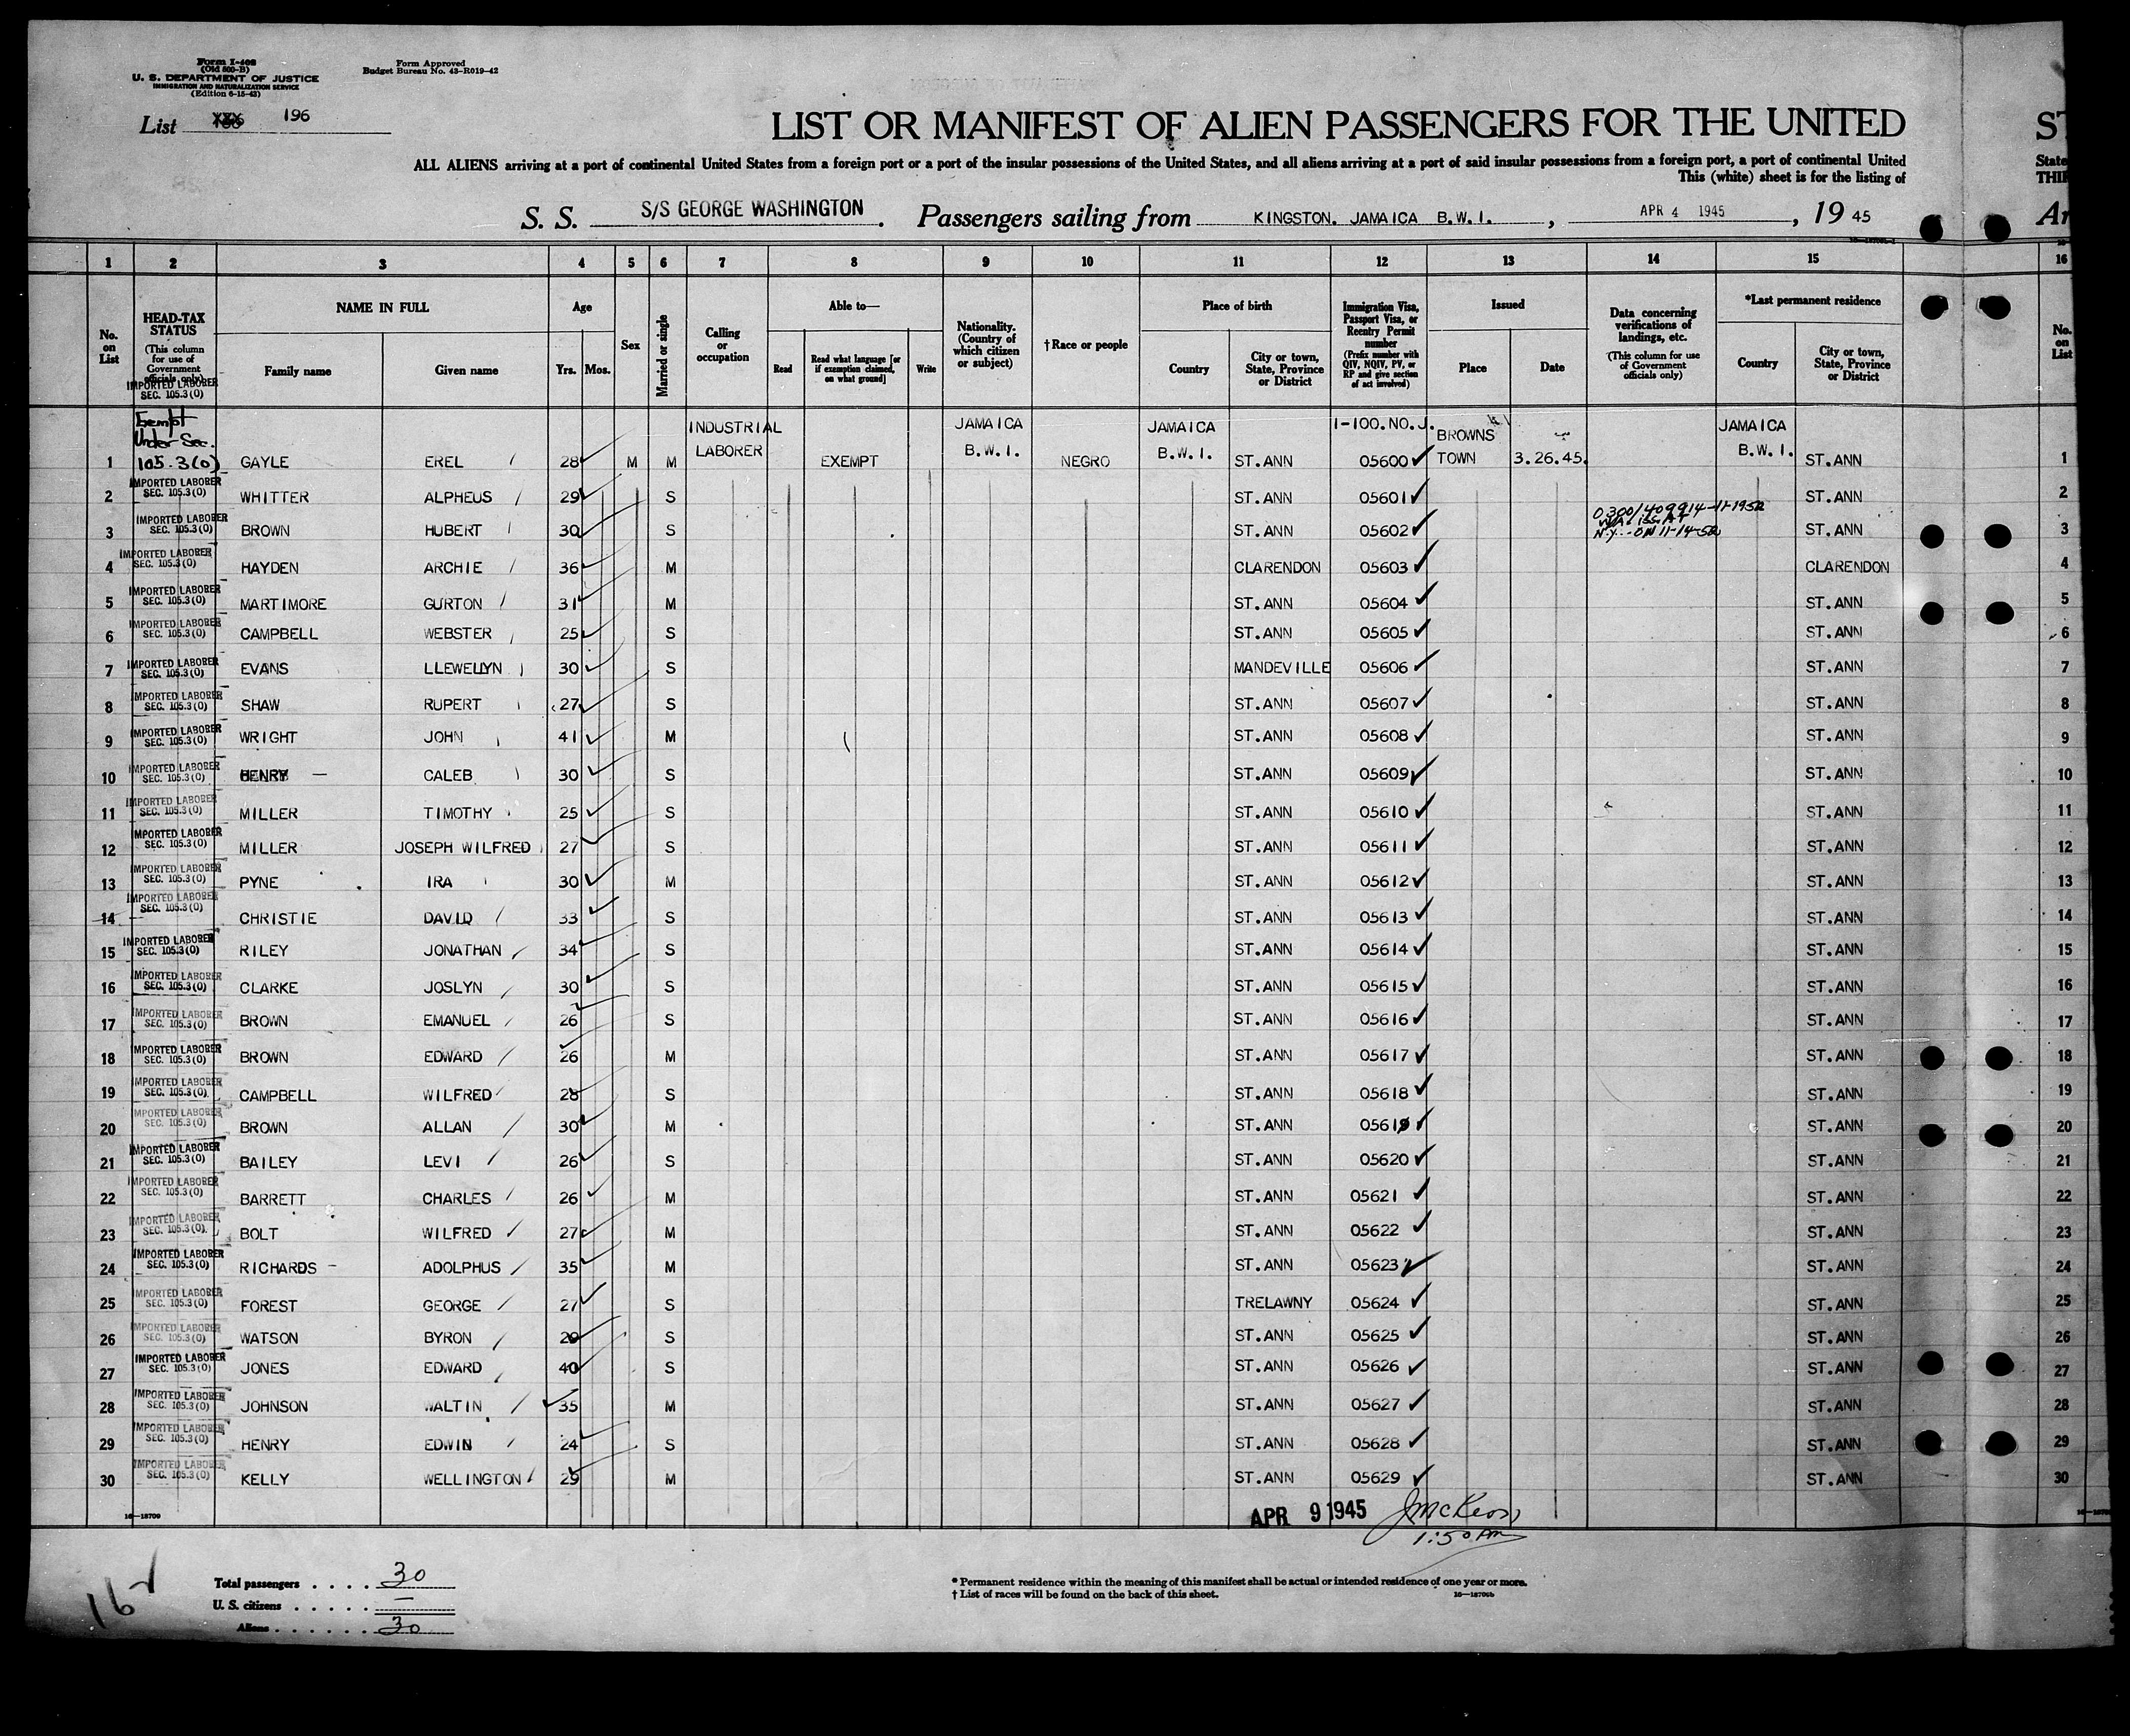 Form I-408
(Old 500-B)
U. S. DEPARTMENT OF JUSTICE
IMMIGRATION AND NATURALIZATION SERVICE
(Edition 6-15-43)
Form Approved
Budget Bureau No. 43-R019-42
List 196
LIST OR MANIFEST OF ALIEN PASSENGERS FOR THE UNITED
ST
ALL ALIENS arriving at a port of continental United States from a foreign port or a port of the insular possessions of the United States, and all aliens arriving at a port of said insular possessions from a foreign port, a port of continental United
State
This (white) sheet is for the listing of
THIR
S. S. S/S GEORGE WASHINGTON. Passengers sailing from KINGSTON. JAMAICA B.W.I., APR 4 1945, 19 45
Ar
1 2 3 4 5 6 7 8 9 10 11 12 13 14 15 16
No. on List
HEAD-TAX STATUS
(This column for use of Government officials only)
IMPORTED LABORER
SEC. 105.3(0)
NAME IN FULL
Family name
Given name
Age
Yrs. Mos.
Sex
Married or single
Calling or occupation
Able to—
Read
Read what language [or if exemption claimed, on what ground]
Write
Nationality. (Country of which citizen or subject)
†Race or people
Place of birth
Country
City or town, State, Province or District
Immigration Visa, Passport Visa, or Reentry Permit number
(Prefix number with QIV, NQIV, PV, or RP and give section of act involved)
Issued
Place
Date
Data concerning verifications of landings, etc.
(This column for use of Government officials only)
*Last permanent residence
Country
City or town, State, Province or District
No. on List
Exempt Under Sec. INDUSTRIAL JAMAICA JAMAICA I-100.NO.J. BROWNS JAMAICA
1 105.3(0) GAYLE EREL 28 M M LABORER EXEMPT B.W.I. NEGRO B.W.I. ST.ANN 05600 TOWN 3.26.45. B.W.I. ST.ANN 1
2 IMPORTED LABORER SEC. 105.3(0) WHITTER ALPHEUS 29 S ST.ANN 05601 ST.ANN 2
3 IMPORTED LABORER SEC. 105.3(0) BROWN HUBERT 30 S ST.ANN 05602 N.Y. ON 11-14-52 ST.ANN 3
4 IMPORTED LABORER SEC. 105.3(0) HAYDEN ARCHIE 36 M CLARENDON 05603 CLARENDON 4
5 IMPORTED LABORER SEC. 105.3(0) MARTIMORE GURTON 31 M ST.ANN 05604 ST.ANN 5
6 IMPORTED LABORER SEC. 105.3(0) CAMPBELL WEBSTER 25 S ST.ANN 05605 ST.ANN 6
7 IMPORTED LABORER SEC. 105.3(0) EVANS LLEWELLYN 30 S MANDEVILLE 05606 ST.ANN 7
8 IMPORTED LABORER SEC. 105.3(0) SHAW RUPERT 27 S ST.ANN 05607 ST.ANN 8
9 IMPORTED LABORER SEC. 105.3(0) WRIGHT JOHN 41 M ST.ANN 05608 ST.ANN 9
10 IMPORTED LABORER SEC. 105.3(0) HENRY CALEB 30 S ST.ANN 05609 ST.ANN 10
11 IMPORTED LABORER SEC. 105.3(0) MILLER TIMOTHY 25 S ST.ANN 05610 ST.ANN 11
12 IMPORTED LABORER SEC. 105.3(0) MILLER JOSEPH WILFRED 27 S ST.ANN 05611 ST.ANN 12
13 IMPORTED LABORER SEC. 105.3(0) PYNE IRA 30 M ST.ANN 05612 ST.ANN 13
14 IMPORTED LABORER SEC. 105.3(0) CHRISTIE DAVID 33 S ST.ANN 05613 ST.ANN 14
15 IMPORTED LABORER SEC. 105.3(0) RILEY JONATHAN 34 S ST.ANN 05614 ST.ANN 15
16 IMPORTED LABORER SEC. 105.3(0) CLARKE JOSLYN 30 S ST.ANN 05615 ST.ANN 16
17 IMPORTED LABORER SEC. 105.3(0) BROWN EMANUEL 26 S ST.ANN 05616 ST.ANN 17
18 IMPORTED LABORER SEC. 105.3(0) BROWN EDWARD 26 M ST.ANN 05617 ST.ANN 18
19 IMPORTED LABORER SEC. 105.3(0) CAMPBELL WILFRED 28 S ST.ANN 05618 ST.ANN 19
20 IMPORTED LABORER SEC. 105.3(0) BROWN ALLAN 30 M ST.ANN 05619 ST.ANN 20
21 IMPORTED LABORER SEC. 105.3(0) BAILEY LEVI 26 S ST.ANN 05620 ST.ANN 21
22 IMPORTED LABORER SEC. 105.3(0) BARRETT CHARLES 26 M ST.ANN 05621 ST.ANN 22
23 IMPORTED LABORER SEC. 105.3(0) BOLT WILFRED 27 M ST.ANN 05622 ST.ANN 23
24 IMPORTED LABORER SEC. 105.3(0) RICHARDS ADOLPHUS 35 M ST.ANN 05623 ST.ANN 24
25 IMPORTED LABORER SEC. 105.3(0) FOREST GEORGE 27 S TRELAWNY 05624 ST.ANN 25
26 IMPORTED LABORER SEC. 105.3(0) WATSON BYRON S ST.ANN 05625 ST.ANN 26
27 IMPORTED LABORER SEC. 105.3(0) JONES EDWARD 40 S ST.ANN 05626 ST.ANN 27
28 IMPORTED LABORER SEC. 105.3(0) JOHNSON WALTIN 35 M ST.ANN 05627 ST.ANN 28
29 IMPORTED LABORER SEC. 105.3(0) HENRY EDWIN 24 S ST.ANN 05628 ST.ANN 29
30 IMPORTED LABORER SEC. 105.3(0) KELLY WELLINGTON 29 M ST.ANN 05629 ST.ANN 30
16—18709
APR 9 1945 J McKeon
1:50 PM
16
Total passengers . . . . 30
U. S. citizens . . . . . —
Aliens . . . . . . 30
* Permanent residence within the meaning of this manifest shall be actual or intended residence of one year or more.
† List of races will be found on the back of this sheet.